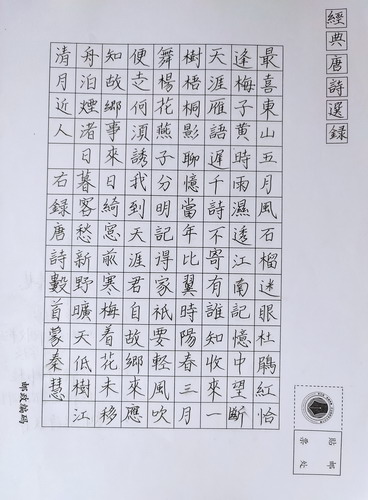 經典唐詩選錄
最喜東山五月風石榴迷眼杜鵑紅恰
逢梅子黃時雨濕透江南記憶中望斷
天涯雁語遲千詩不寄有誰知收來一
樹梧桐影聊憶當年比翼時陽春三月
舞楊花燕子分明記得家祇要輕風吹
便走何須誘我到天涯君自故鄉來應
知故鄉事來日綺窓前寒梅着花未移
舟泊煙渚日暮客愁新野曠天低樹江
清月近人 右錄唐詩數首蒙秦慧
郵政編碼
貼郵
票處